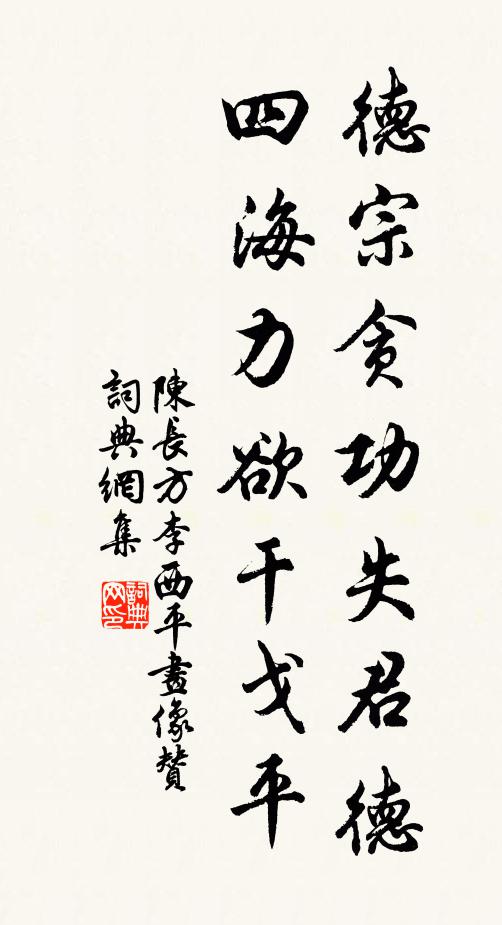 德宗贪功失君德
四海力欲干戈平
陳長方李西平畫像贊
詞典網集
詞典网印